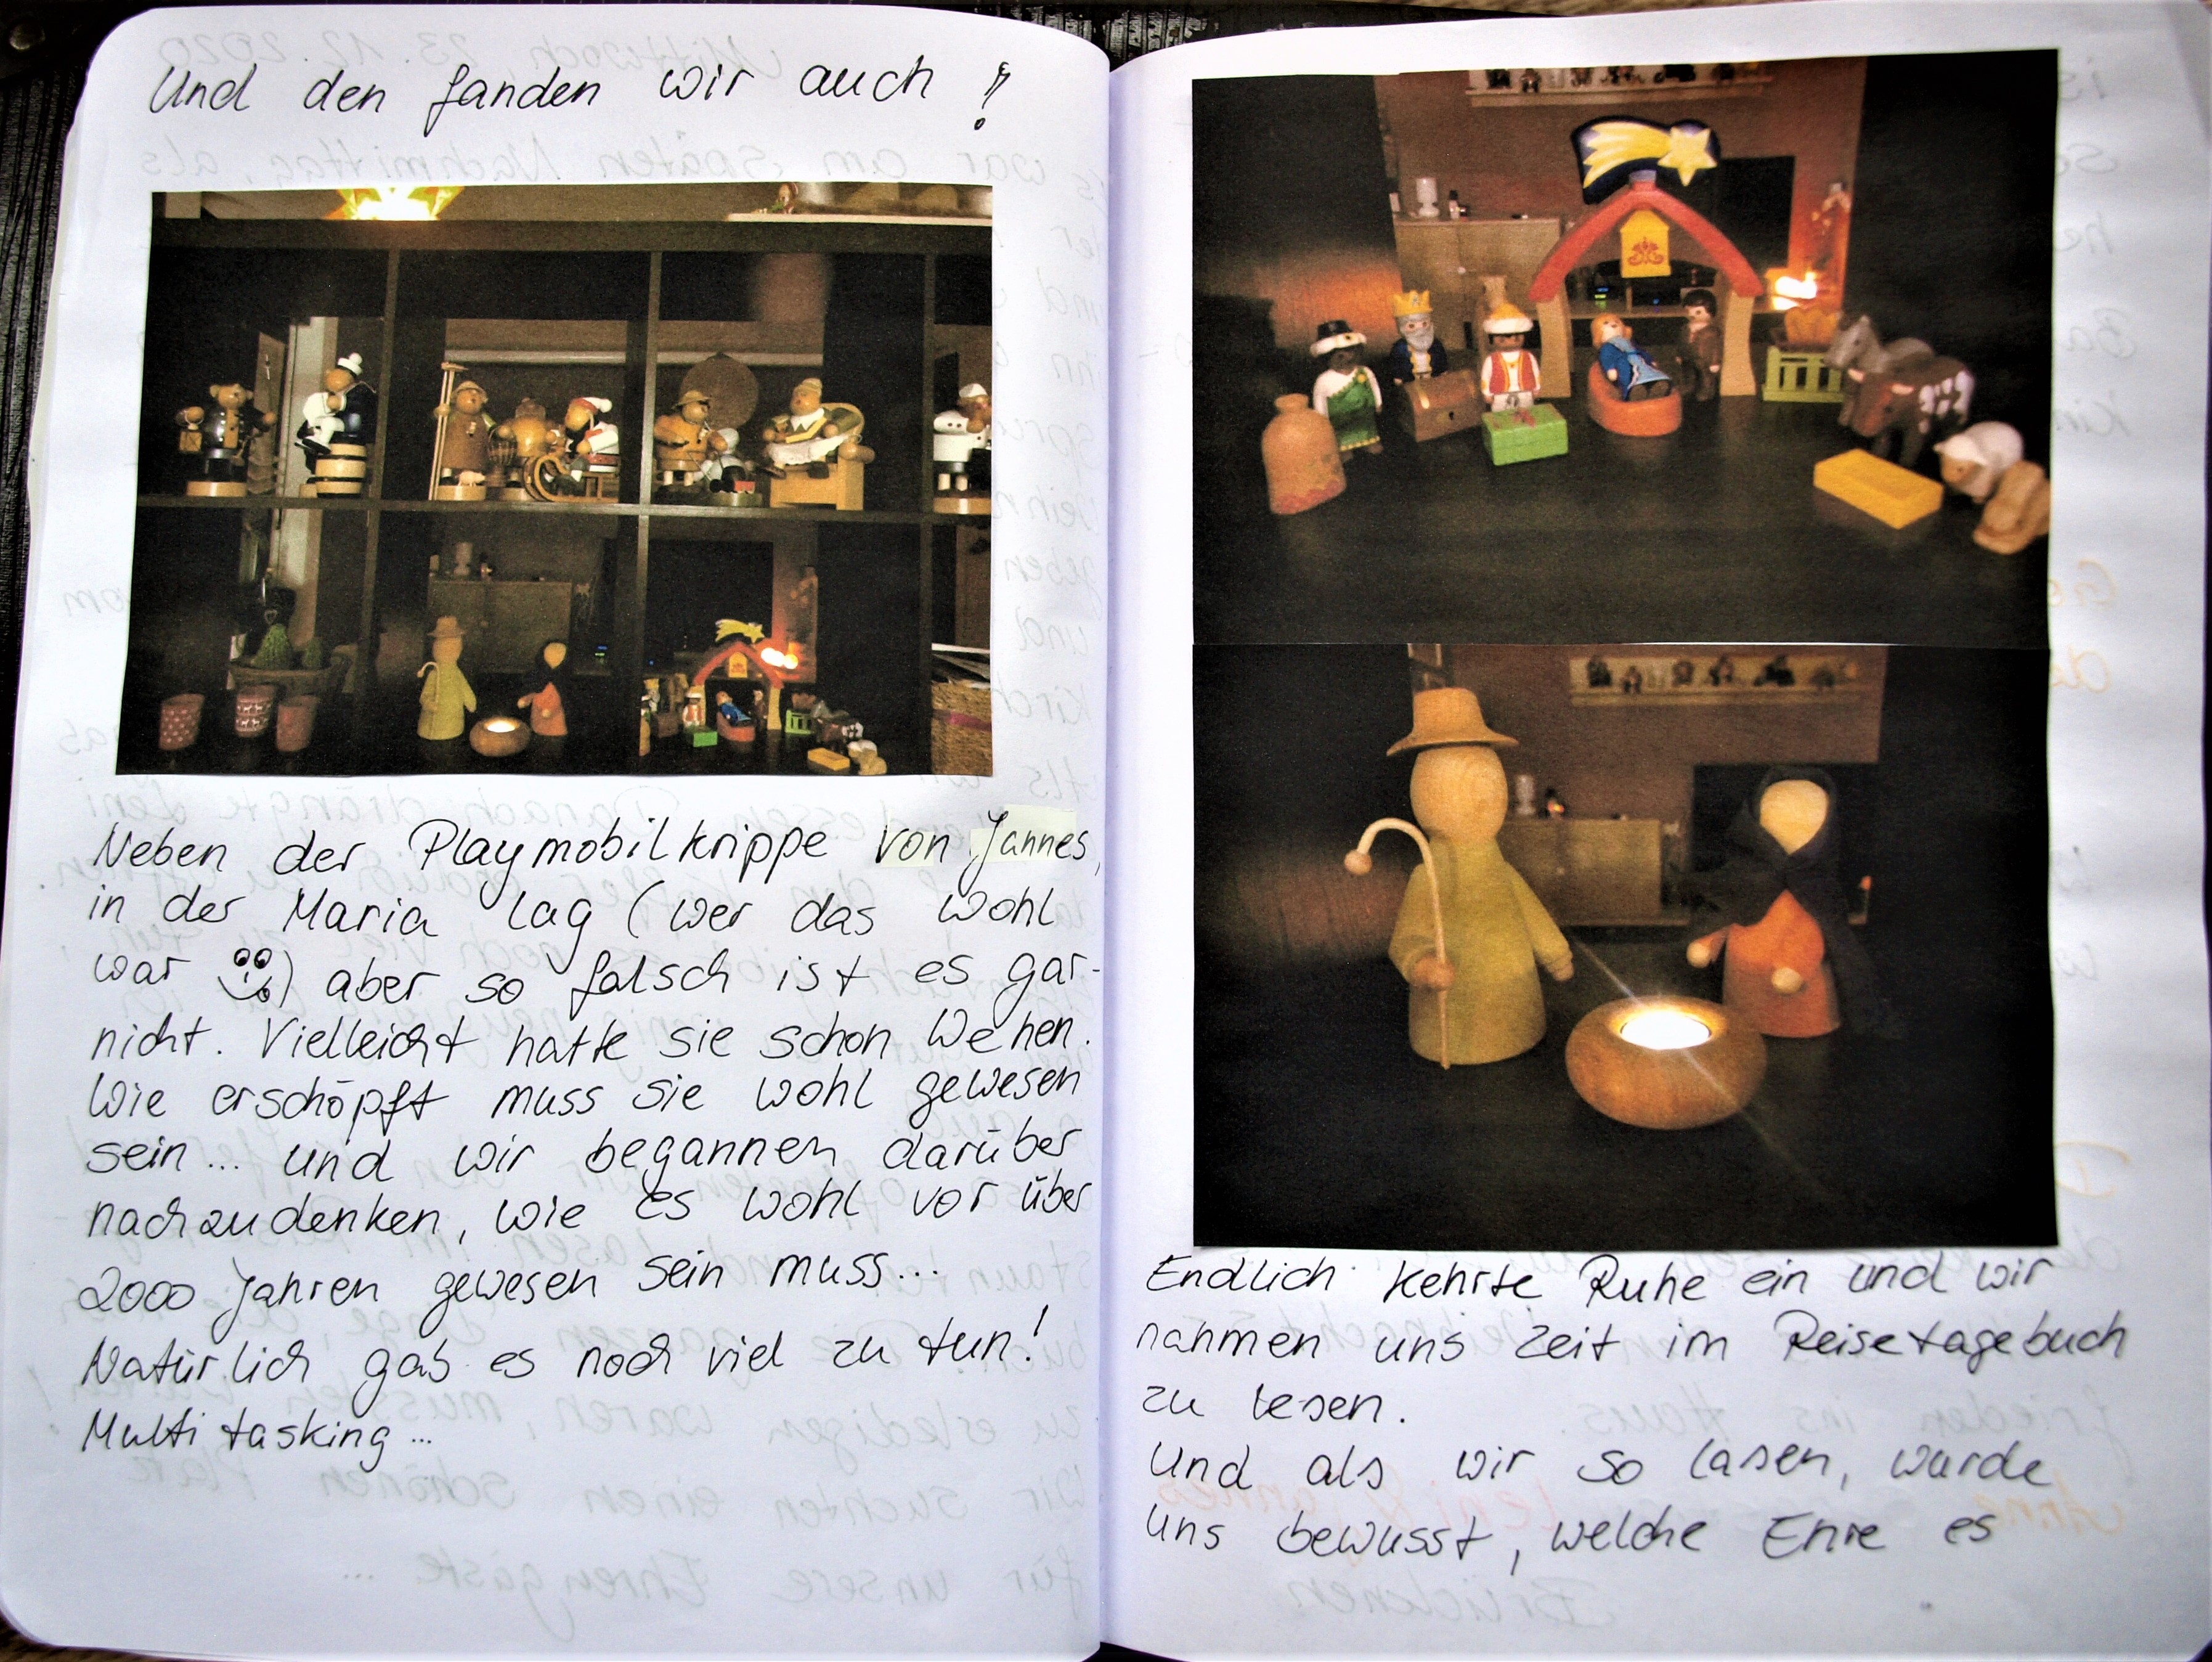 Und den fanden wir auch !
Neben der Playmobilkrippe von Jannes,
in der Maria lag (wer das wohl
war ) aber so falsch ist es gar-
nicht. Vielleicht hatte sie schon Wehen.
Wie erschöpft muss sie wohl gewesen
sein... und wir begannen darüber
nachzudenken, wie es wohl vor über
2000 Jahren gewesen sein muss...
Natürlich gab es noch viel zu tun!
Multitasking...
Endlich kehrte Ruhe ein und wir
nahmen uns Zeit im Reisetagebuch
zu lesen.
Und als wir so lasen, wurde
uns bewusst, welche Ehre es